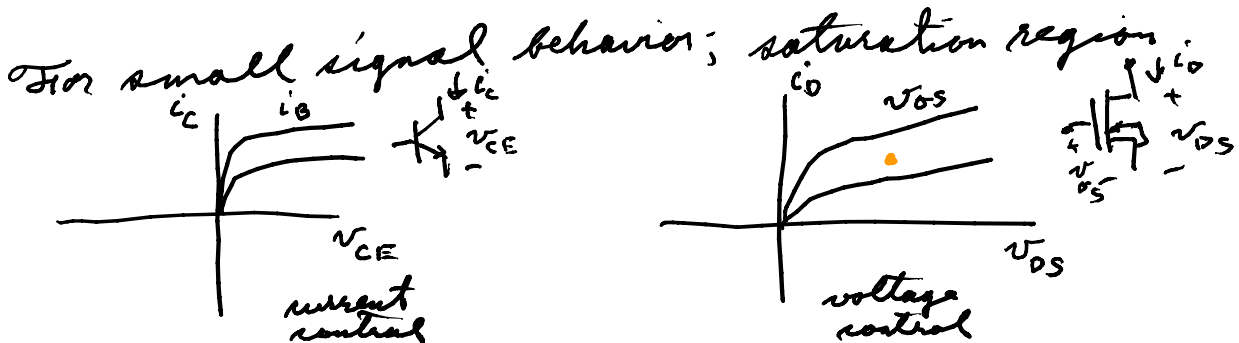 For small signal behavior; saturation region.
i_C
i_B
↓ i_C
+
v_CE
-
v_CE
current control
i_D
v_GS
↓ i_D
+
v_DS
-
+
v_GS
-
v_DS
voltage control